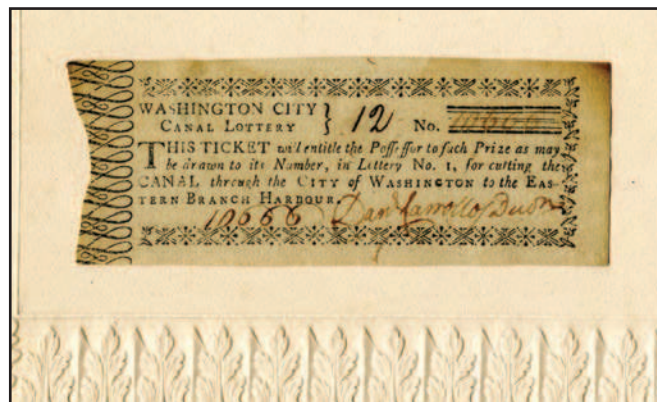 WASHINGTON CITY } 12 No. 10666
CANAL LOTTERY
THIS TICKET will entitle the Possessor to such Prize as may
be drawn to its Number, in Lottery No. 1, for cutting the
CANAL through the CITY of WASHINGTON to the EAS-
TERN BRANCH HARBOUR.
10666 Danl Carroll of Dudn